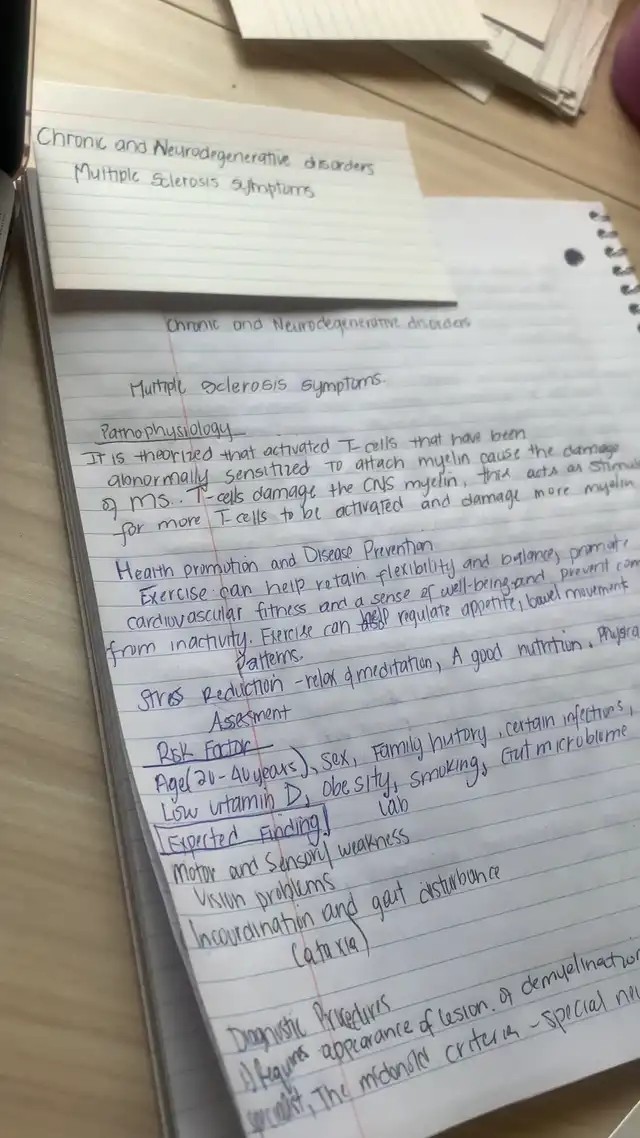 Chronic and Neurodegenerative disorders
Multiple Sclerosis Symptoms
Chronic and Neurodegenerative disorders
Multiple Sclerosis Symptoms.
Pathophysiology
It is theorized that activated T-cells that have been
abnormally sensitized to attach myelin cause the damage
of MS. T-cells damage the CNS myelin, this acts as
for more T-cells to be activated and damage more myelin
Health promotion and Disease Prevention
Exercise can help retain flexibility and balance, promote
cardiovascular fitness and a sense of well-being and prevent
from inactivity. Exercise can regulate appetite, bowel movement
Patterns.
Stress Reduction - relax & meditation, A good nutrition.
Assesment
Risk Factor
Age (20-40 years), Sex, Family history, certain infections,
Low vitamin D, obesity, smoking, Gut microbiome
Expected Finding Lab
Motor and Sensory weakness
Vision problems
Incoordination and gait disturbance
(ataxia)
Diagnostic Procedures
appearance of lesion of demyelination
The mcdonald criteria - special